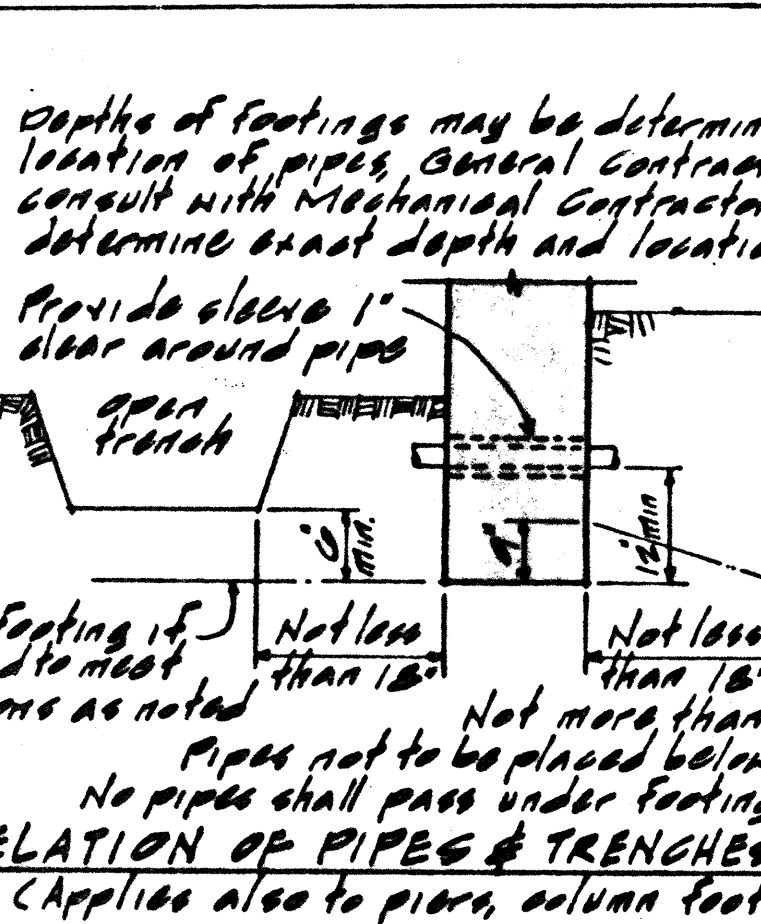 Depths of footings may be determin
location of pipes, General Contrac
consult with Mechanical Contracto
determine exact depth and locatio
Provide sleeve 1"
clear around pipe
open
trench
6" min.
9"
12" min
footing if
d to meet
ons as noted
Not less
than 18"
Not less
than 18"
Not more than
Pipes not to be placed below
No pipes shall pass under footing
ELATION OF PIPES & TRENCHES
(Applies also to piers, column foot